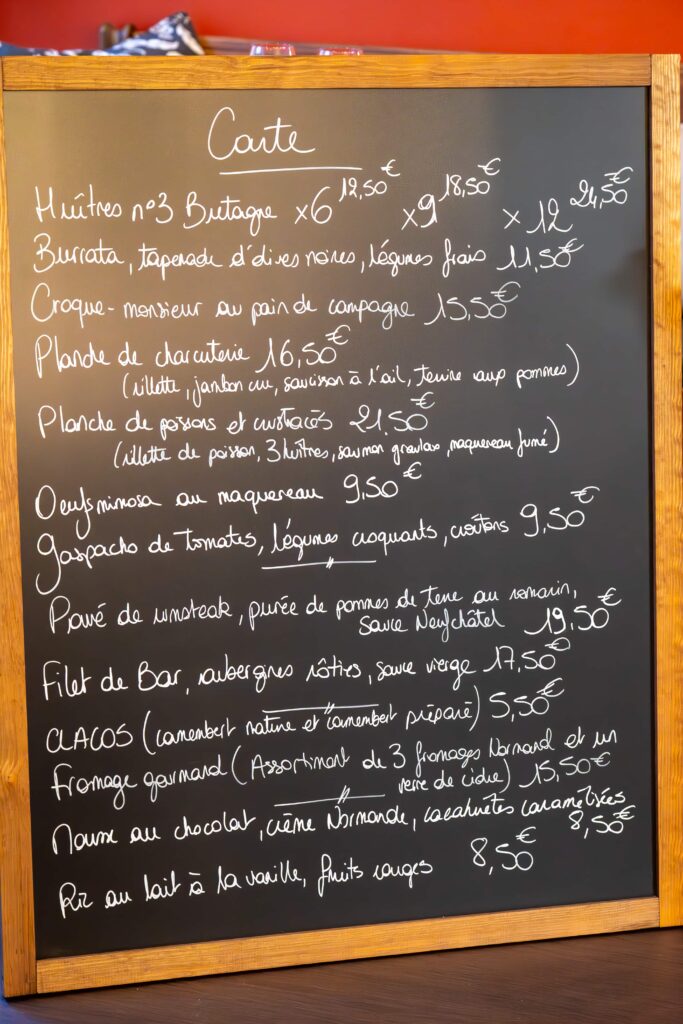 Carte
Huîtres n°3 Bretagne x6 12,50€ x9 18,50€ x12 24,50€
Burrata, tapenade d'olives noires, légumes frais 11,50€
Croque-monsieur au pain de campagne 15,50€
Planche de charcuterie 16,50€
(rillette, jambon cru, saucisson à l'ail, terrine aux pommes)
Planche de poissons et crustacés 21,50€
(rillette de poisson, 3 huîtres, saumon gravlax, maquereau fumé)
Oeufs mimosa au maquereau 9,50€
gaspacho de tomates, légumes croquants, croûtons 9,50€
Pavé de rumsteak, purée de pommes de terre au romarin,
sauce Neufchâtel 19,50€
Filet de Bar, aubergines rôties, sauce vierge 17,50€
CLACOS (camembert nature et camembert préparé) 5,50€
Fromage gourmand (Assortiment de 3 fromages Normand et un
verre de cidre) 15,50€
Mousse au chocolat, crème Normande, cacahuètes caramélisées
8,50€
Riz au lait à la vanille, fruits rouges 8,50€